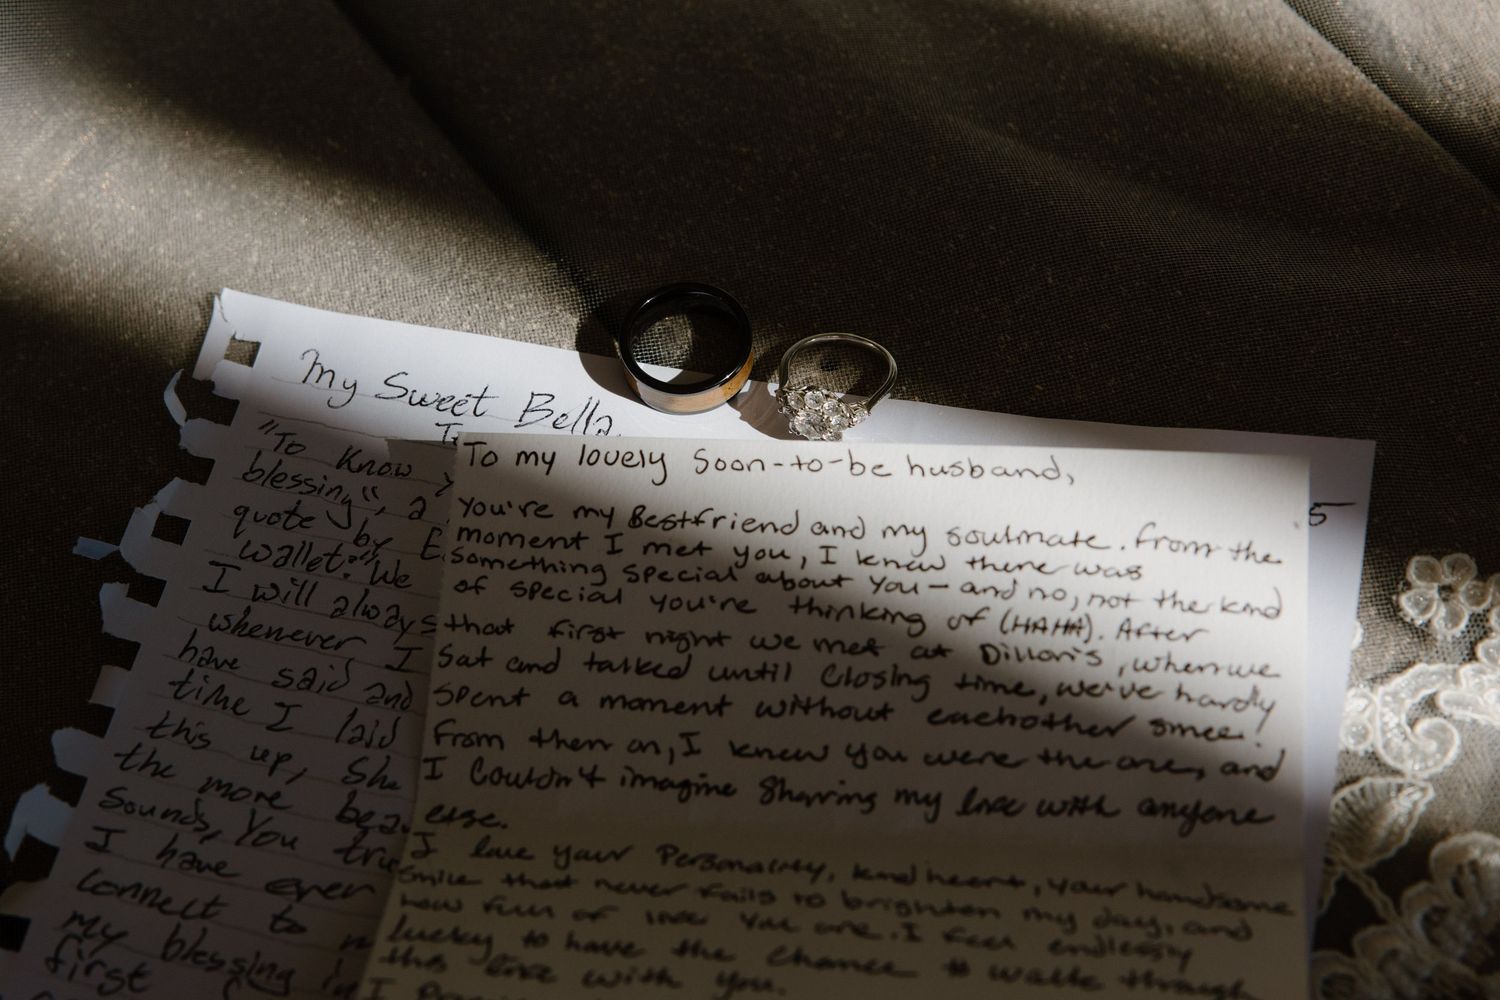 My Sweet Bella,
"To Know
blessing", a
quote by E
wallet. We
I will always
whenever I
have said and
time I laid
this up, She
the more bea
Sounds, You tru
I have ever
connect to
my blessing
first
5
To my lovely Soon-to-be husband,
You're my Bestfriend and my soulmate. From the
moment I met you, I knew there was
something special about you - and no, not the kind
of special you're thinking of (HAHA). After
that first night we met at Dillon's, when we
Sat and talked until Closing time, we've hardly
spent a moment without eachother since!
From then on, I knew you were the one, and
I Couldn't imagine Sharing my life with anyone
else.
I love your Personality, kind heart, your handsome
Smile that never fails to brighten my day, and
how full of love you are. I feel endlessly
lucky to have the chance to walk through
this life with you.